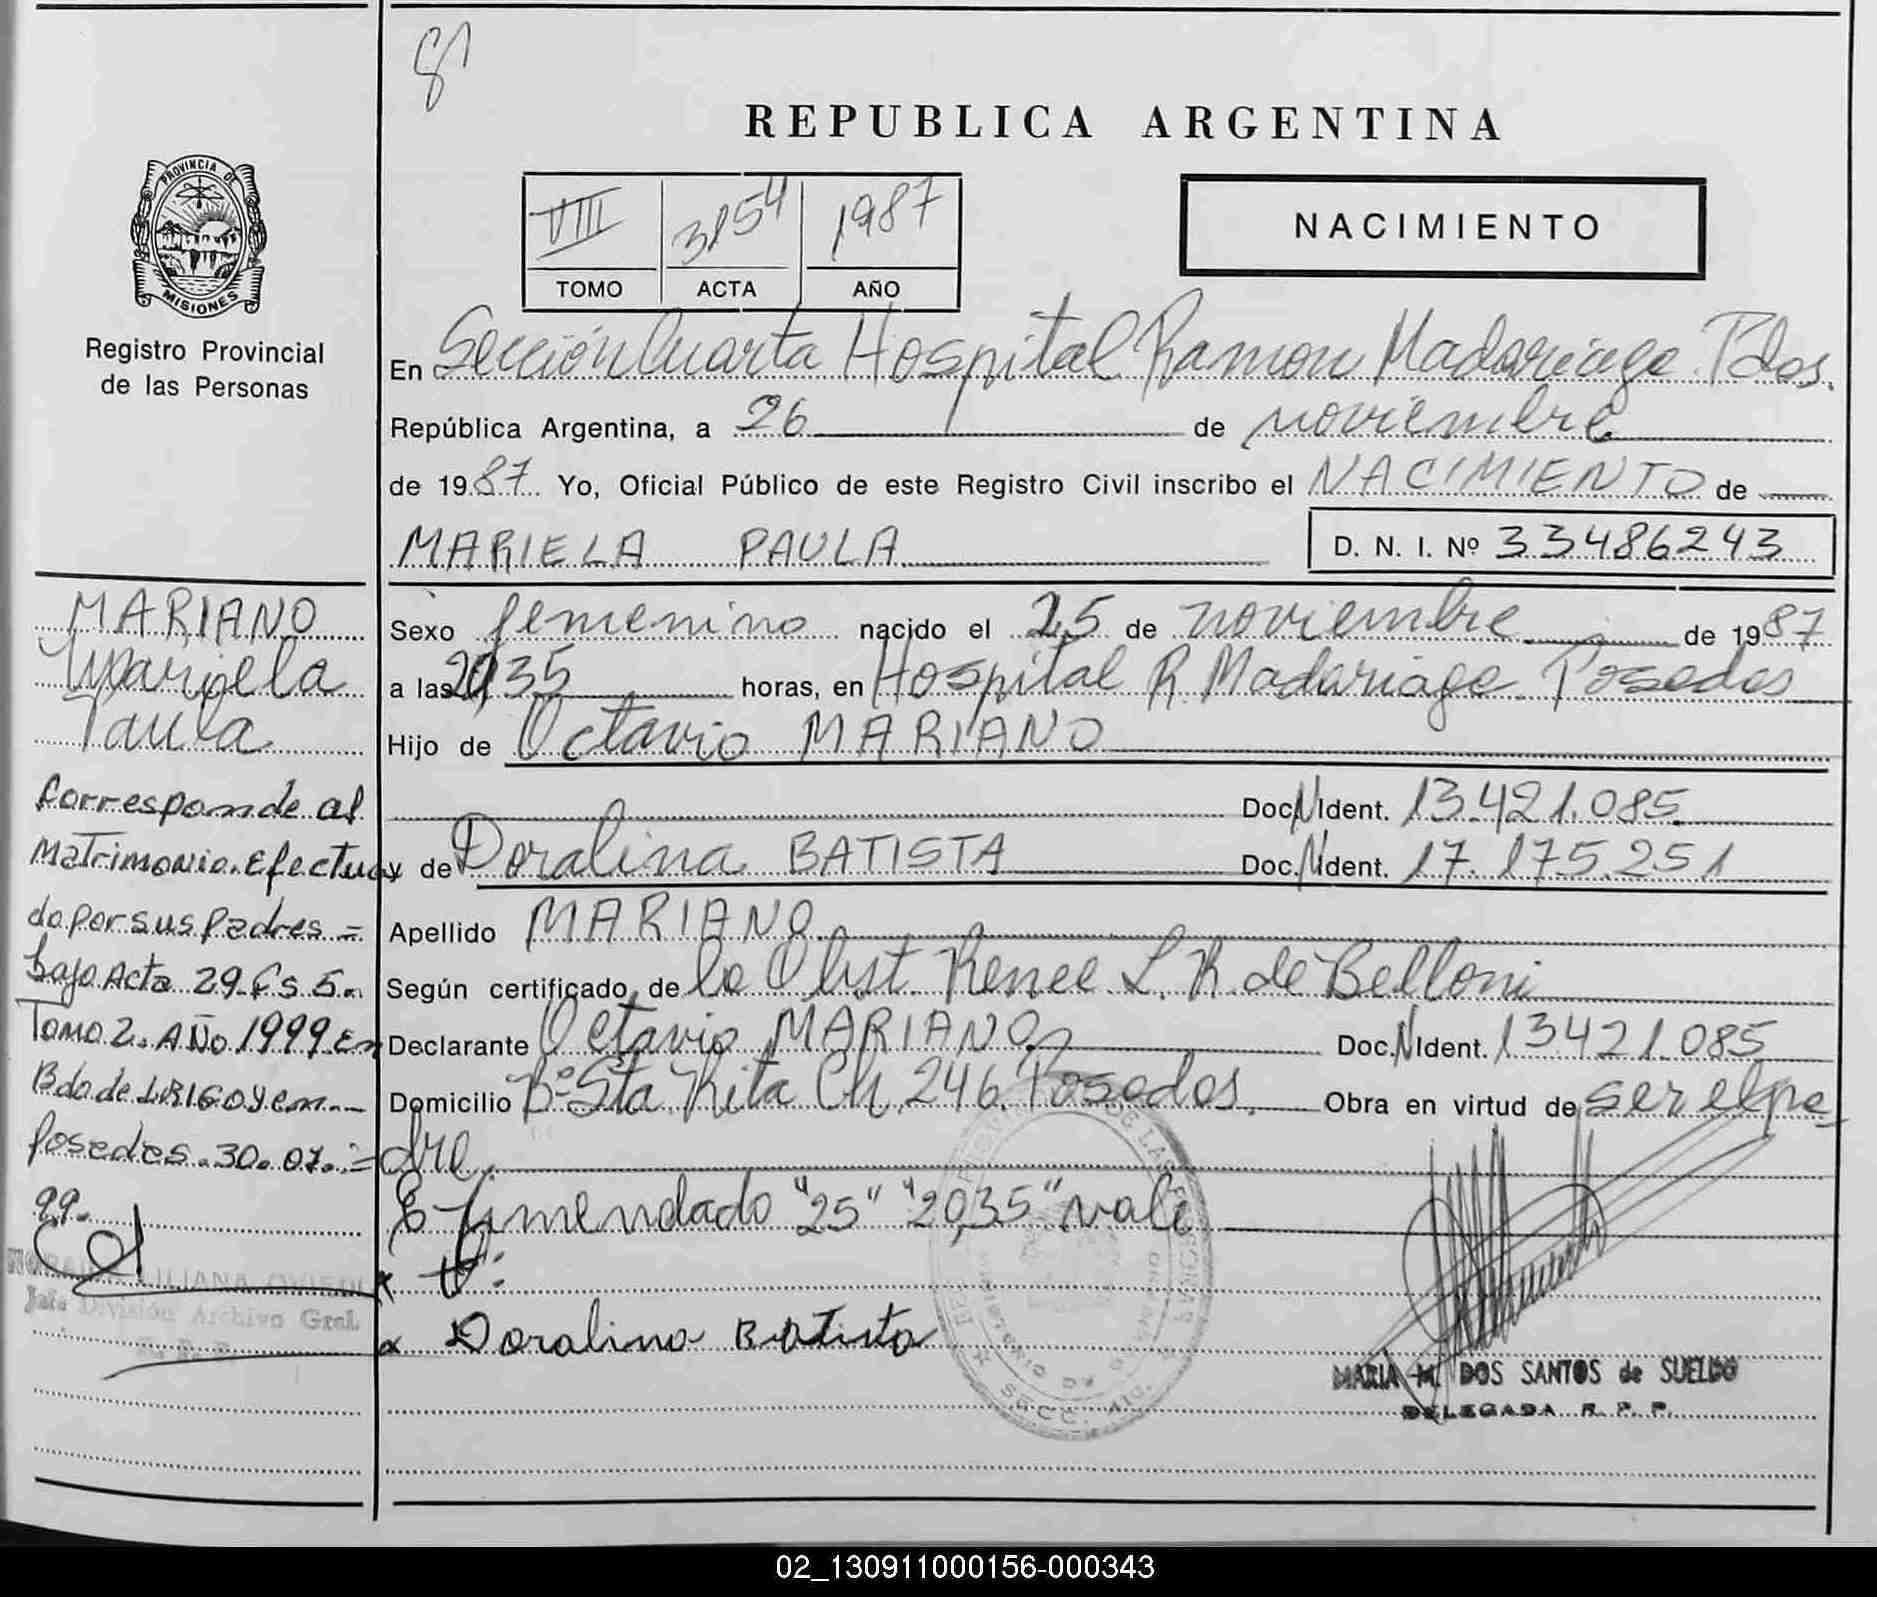 8
REPUBLICA ARGENTINA
PROVINCIA DE
MISIONES
Registro Provincial
de las Personas
VIII 3154 1987
TOMO ACTA AÑO
NACIMIENTO
En Sección Cuarta Hospital Ramon Madariaga Pdas.
República Argentina, a 26 de noviembre
de 1987 Yo, Oficial Público de este Registro Civil inscribo el NACIMIENTO de
MARIELA PAULA D. N. I. Nº 33486243
Sexo femenino nacido el 25 de noviembre de 1987
a las 20,35 horas, en Hospital R. Madariaga Posadas
Hijo de Octavio MARIANO
Doc. N Ident. 13.421.085
y de Doralina BATISTA Doc. N Ident. 17.175.251
Apellido MARIANO
Según certificado de la Obst. Renee L. R. de Belloni
Declarante Octavio MARIANO Doc. N Ident. 13421.085
Domicilio Bº Sta. Rita Ch. 246 Posadas. Obra en virtud de ser el pa
dre.
Enmendado "25" "20,35" vale
Doralina Batista
MARIA M. DOS SANTOS de SUELDO
DELEGADA R. P. P.
MARIANO
Mariela
Paula
Corresponde al
Matrimonio. Efectua
do por sus Padres =
bajo Acta 29. Fs 5.
Tomo 2. AÑO 1999. En
Bdo de IRIGOYEN.
Posadas. 30. 07. =
99.
LILIANA
Jefe División Archivo Gral.
R. P. P.
02_130911000156-000343